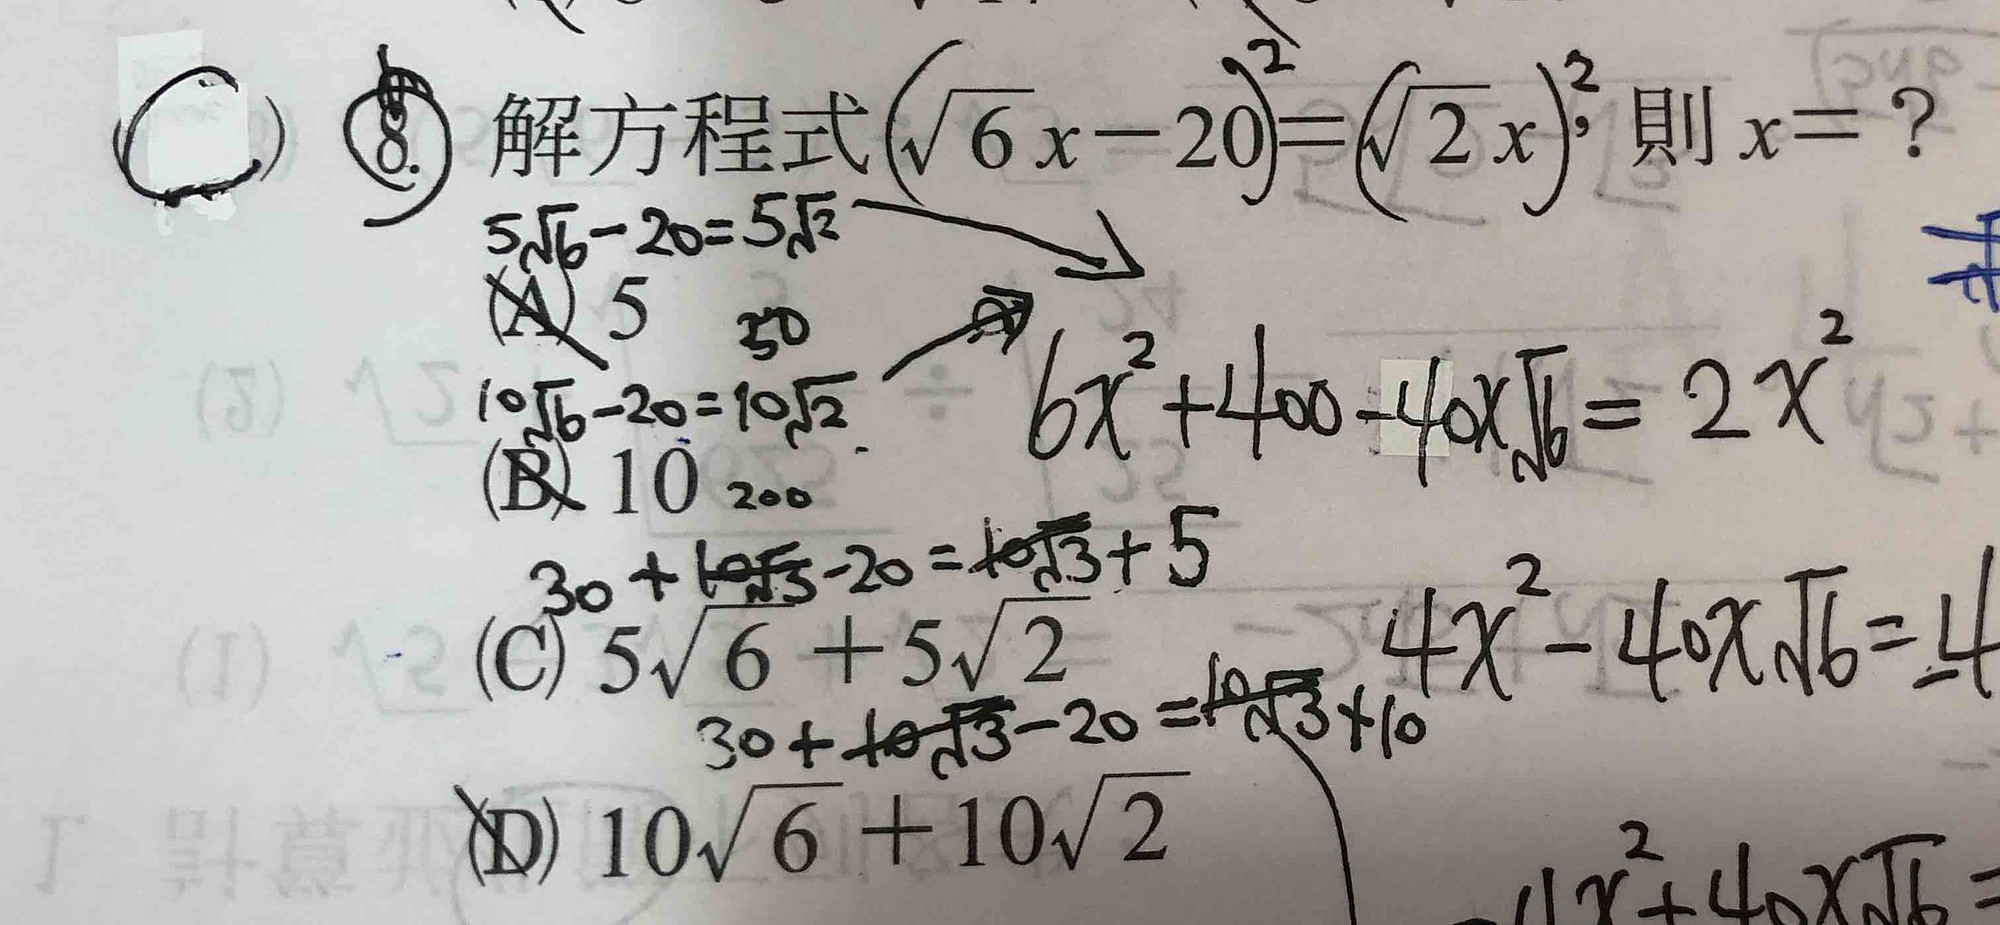 8. 解方程式(√6x−20)²=(√2x)²，則x=？
5√6-20=5√2
(A) 5
30
10√6-20=10√2
6x²+400-40x√6=2x²
(B) 10
200
30+10√3-20=10√3+5
(C) 5√6+5√2
4x²-40x√6=-4
30+10√3-20=10√3+10
(D) 10√6+10√2
4x²+40x√6=